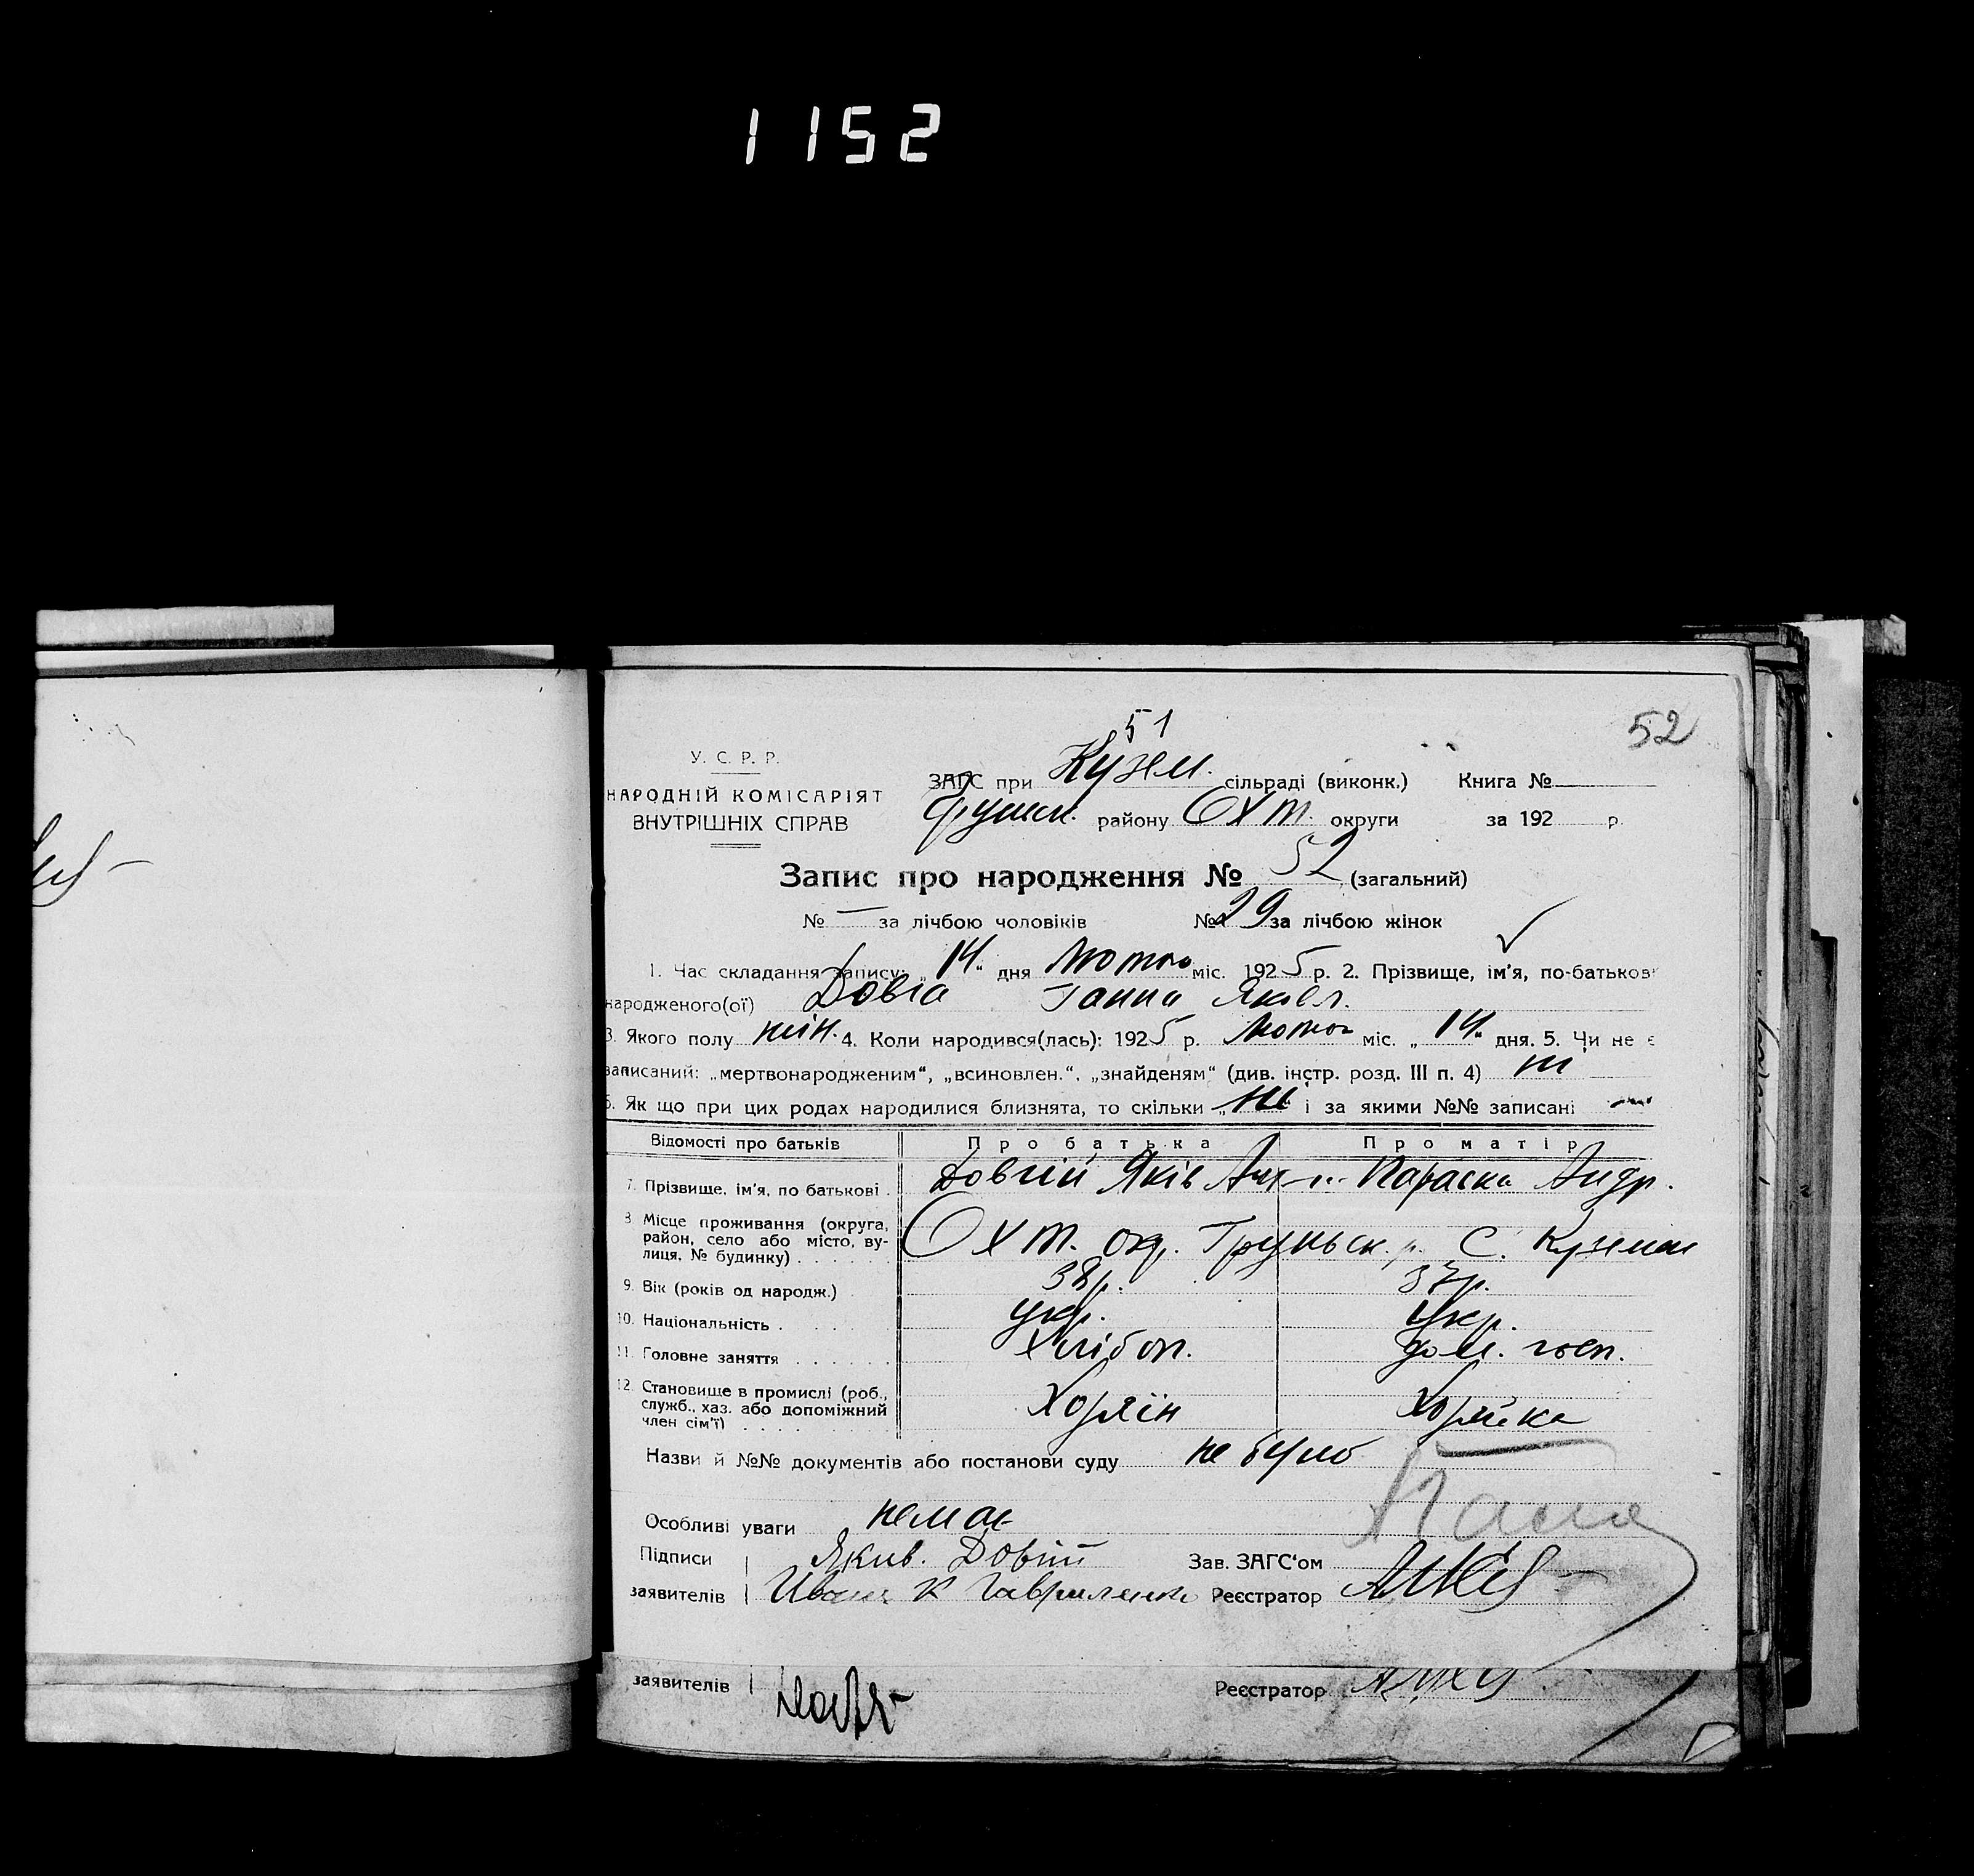 1152
51
52
У. С. Р. Р.
НАРОДНІЙ КОМІСАРІЯТ
ВНУТРІШНІХ СПРАВ
ЗАГС при Кузем. сільраді (виконк.) Книга №
району Охт. округи за 192 р.
Запис про народження № 52 (загальний)
№ — за лічбою чоловіків № 29 за лічбою жінок
1. Час складання запису: „14“ дня Лютого міс. 1925 р. 2. Прізвище, ім'я, по-батькові
народженого(ої) Довга Ганна Яковл.
3. Якого полу жін. 4. Коли народився(лась): 1925 р. Лютого міс. „14“ дня. 5. Чи не є
записаний: „мертвонародженим“, „всиновлен.“, „знайденям“ (див. інстр. розд. III п. 4) ні
6. Як що при цих родах народилися близнята, то скільки „ні“ і за якими №№ записані —
Відомості про батьків Про батька Про матір
7. Прізвище, ім'я, по батькові . Довгий Яків Параска Андр.
8. Місце проживання (округа,
район, село або місто, ву-
лиця, № будинку) . . . . . . Охт. окр. Груньск. р. С. Куземен
9. Вік (років од народж.) 38 р. 37 р.
10. Національність . . . . . укр. Укр.
11. Головне заняття . . . . . . Хлібор. дом. госп.
12. Становище в промислі (роб.,
служб., хаз. або допоміжний
член сім'ї) . . . . Хозяїн Хозяйка
Назви й №№ документів або постанови суду не було
Особливі уваги немає
Підписи Якив. Довгий Зав. ЗАГС'ом
заявителів Иван К Гавриленко Реєстратор
заявителів Реєстратор